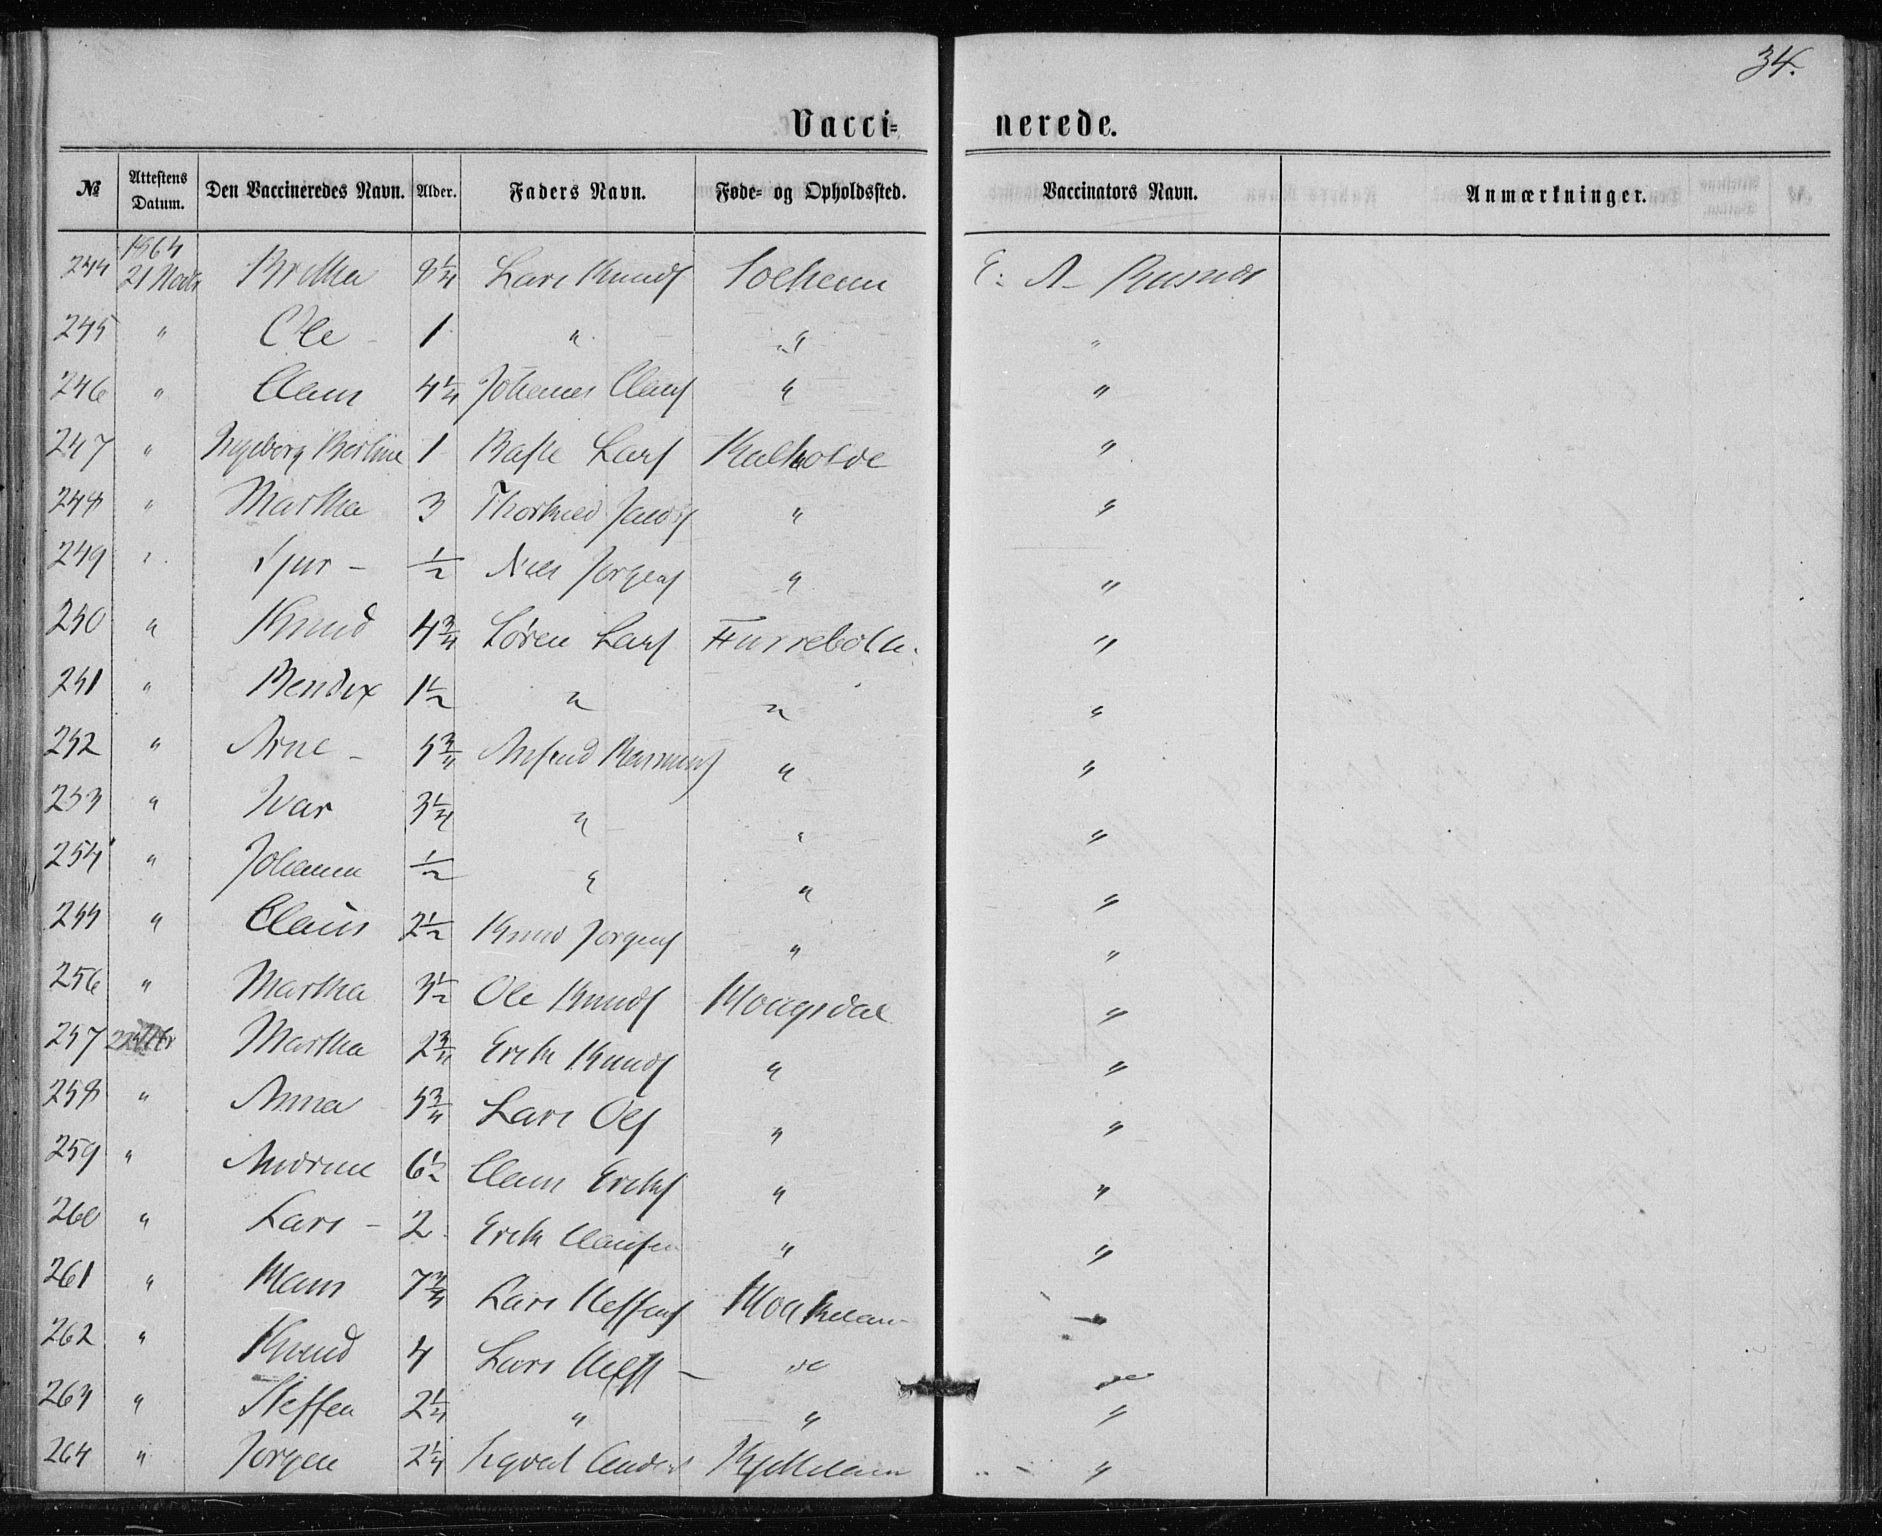 34.
Vacci= nerede.
№ Attestens Datum. Den Vaccineredes Navn. Alder. Faders Navn. Føde- og Opholdssted. Vaccinators Navn. Anmærkninger.
1864
244 21 Novbr Britha 9¼ Lars Knuds Solheim E. A.
245 " Ole - 1 " " "
246 " Claus 4¼ Johannes Claus " "
247 " Ingeborg Berthine 1 Baste Lars "
248 " Martha 3 Jacobs " "
249 " - ½ Niels Jørgens " "
250 " Knud 4¾ Søren Lars Furrebotn. "
251 " Bendix 1½ " " "
252 " Arne - 5¾ Rasmus " "
253 " Ivar 3¼ " " "
254 " Johanna ½ " " "
255 " Claus 2½ Knud Jørgens " "
256 " Martha 3½ Ole Knuds "
257 Martha 2¾ Erik Knuds " "
258 " Anna 5¾ Lars Ols " "
259 " Andrine 6½ Claus Eriks " "
260 " Lars - 2 Erik Clausen " "
261 " Hans 7¾ Lars Steffens "
262 " Knud 4 Lars -
263 " Steffen 2¼ " " "
264 " Jørgen 2¼ Anders "